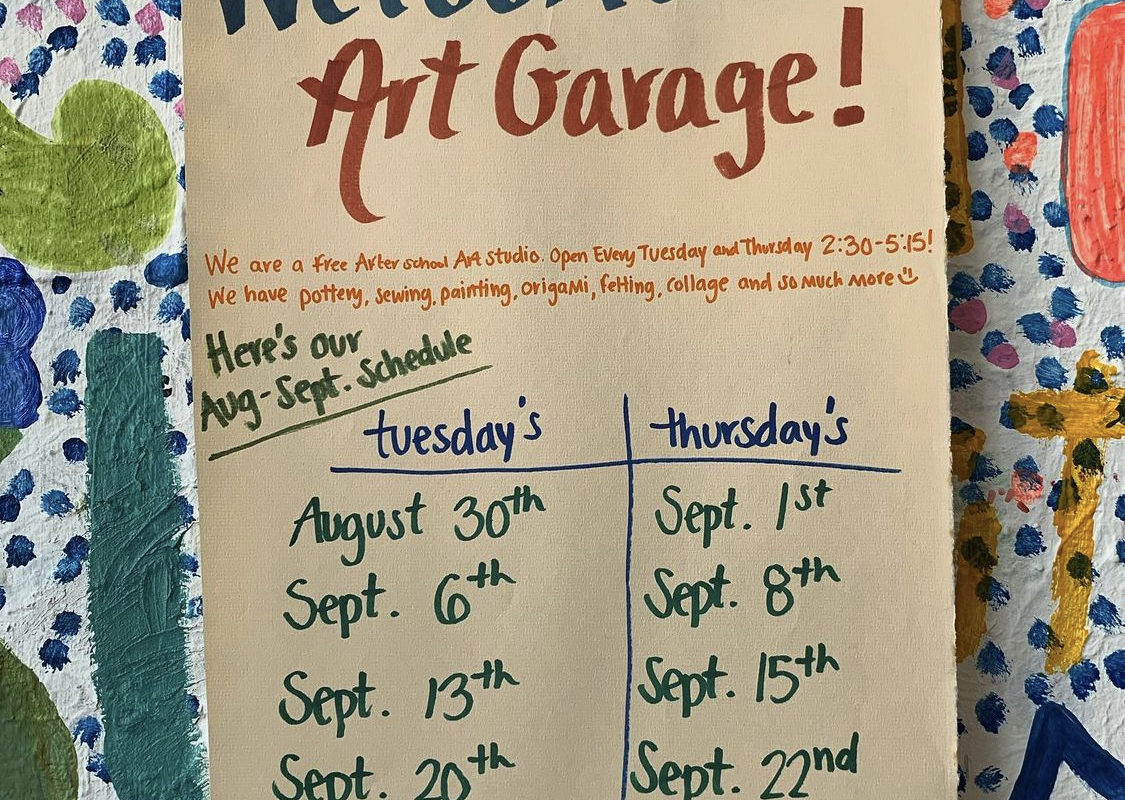 Welcome
Art Garage!
We are a free After school Art studio. Open Every Tuesday and Thursday 2:30-5:15!
We have pottery, sewing, painting, origami, felting, collage and so much more
Here's our
Aug-Sept. Schedule
tuesday's thursday's
August 30th Sept. 1st
Sept. 6th Sept. 8th
Sept. 13th Sept. 15th
Sept. 20th Sept. 22nd